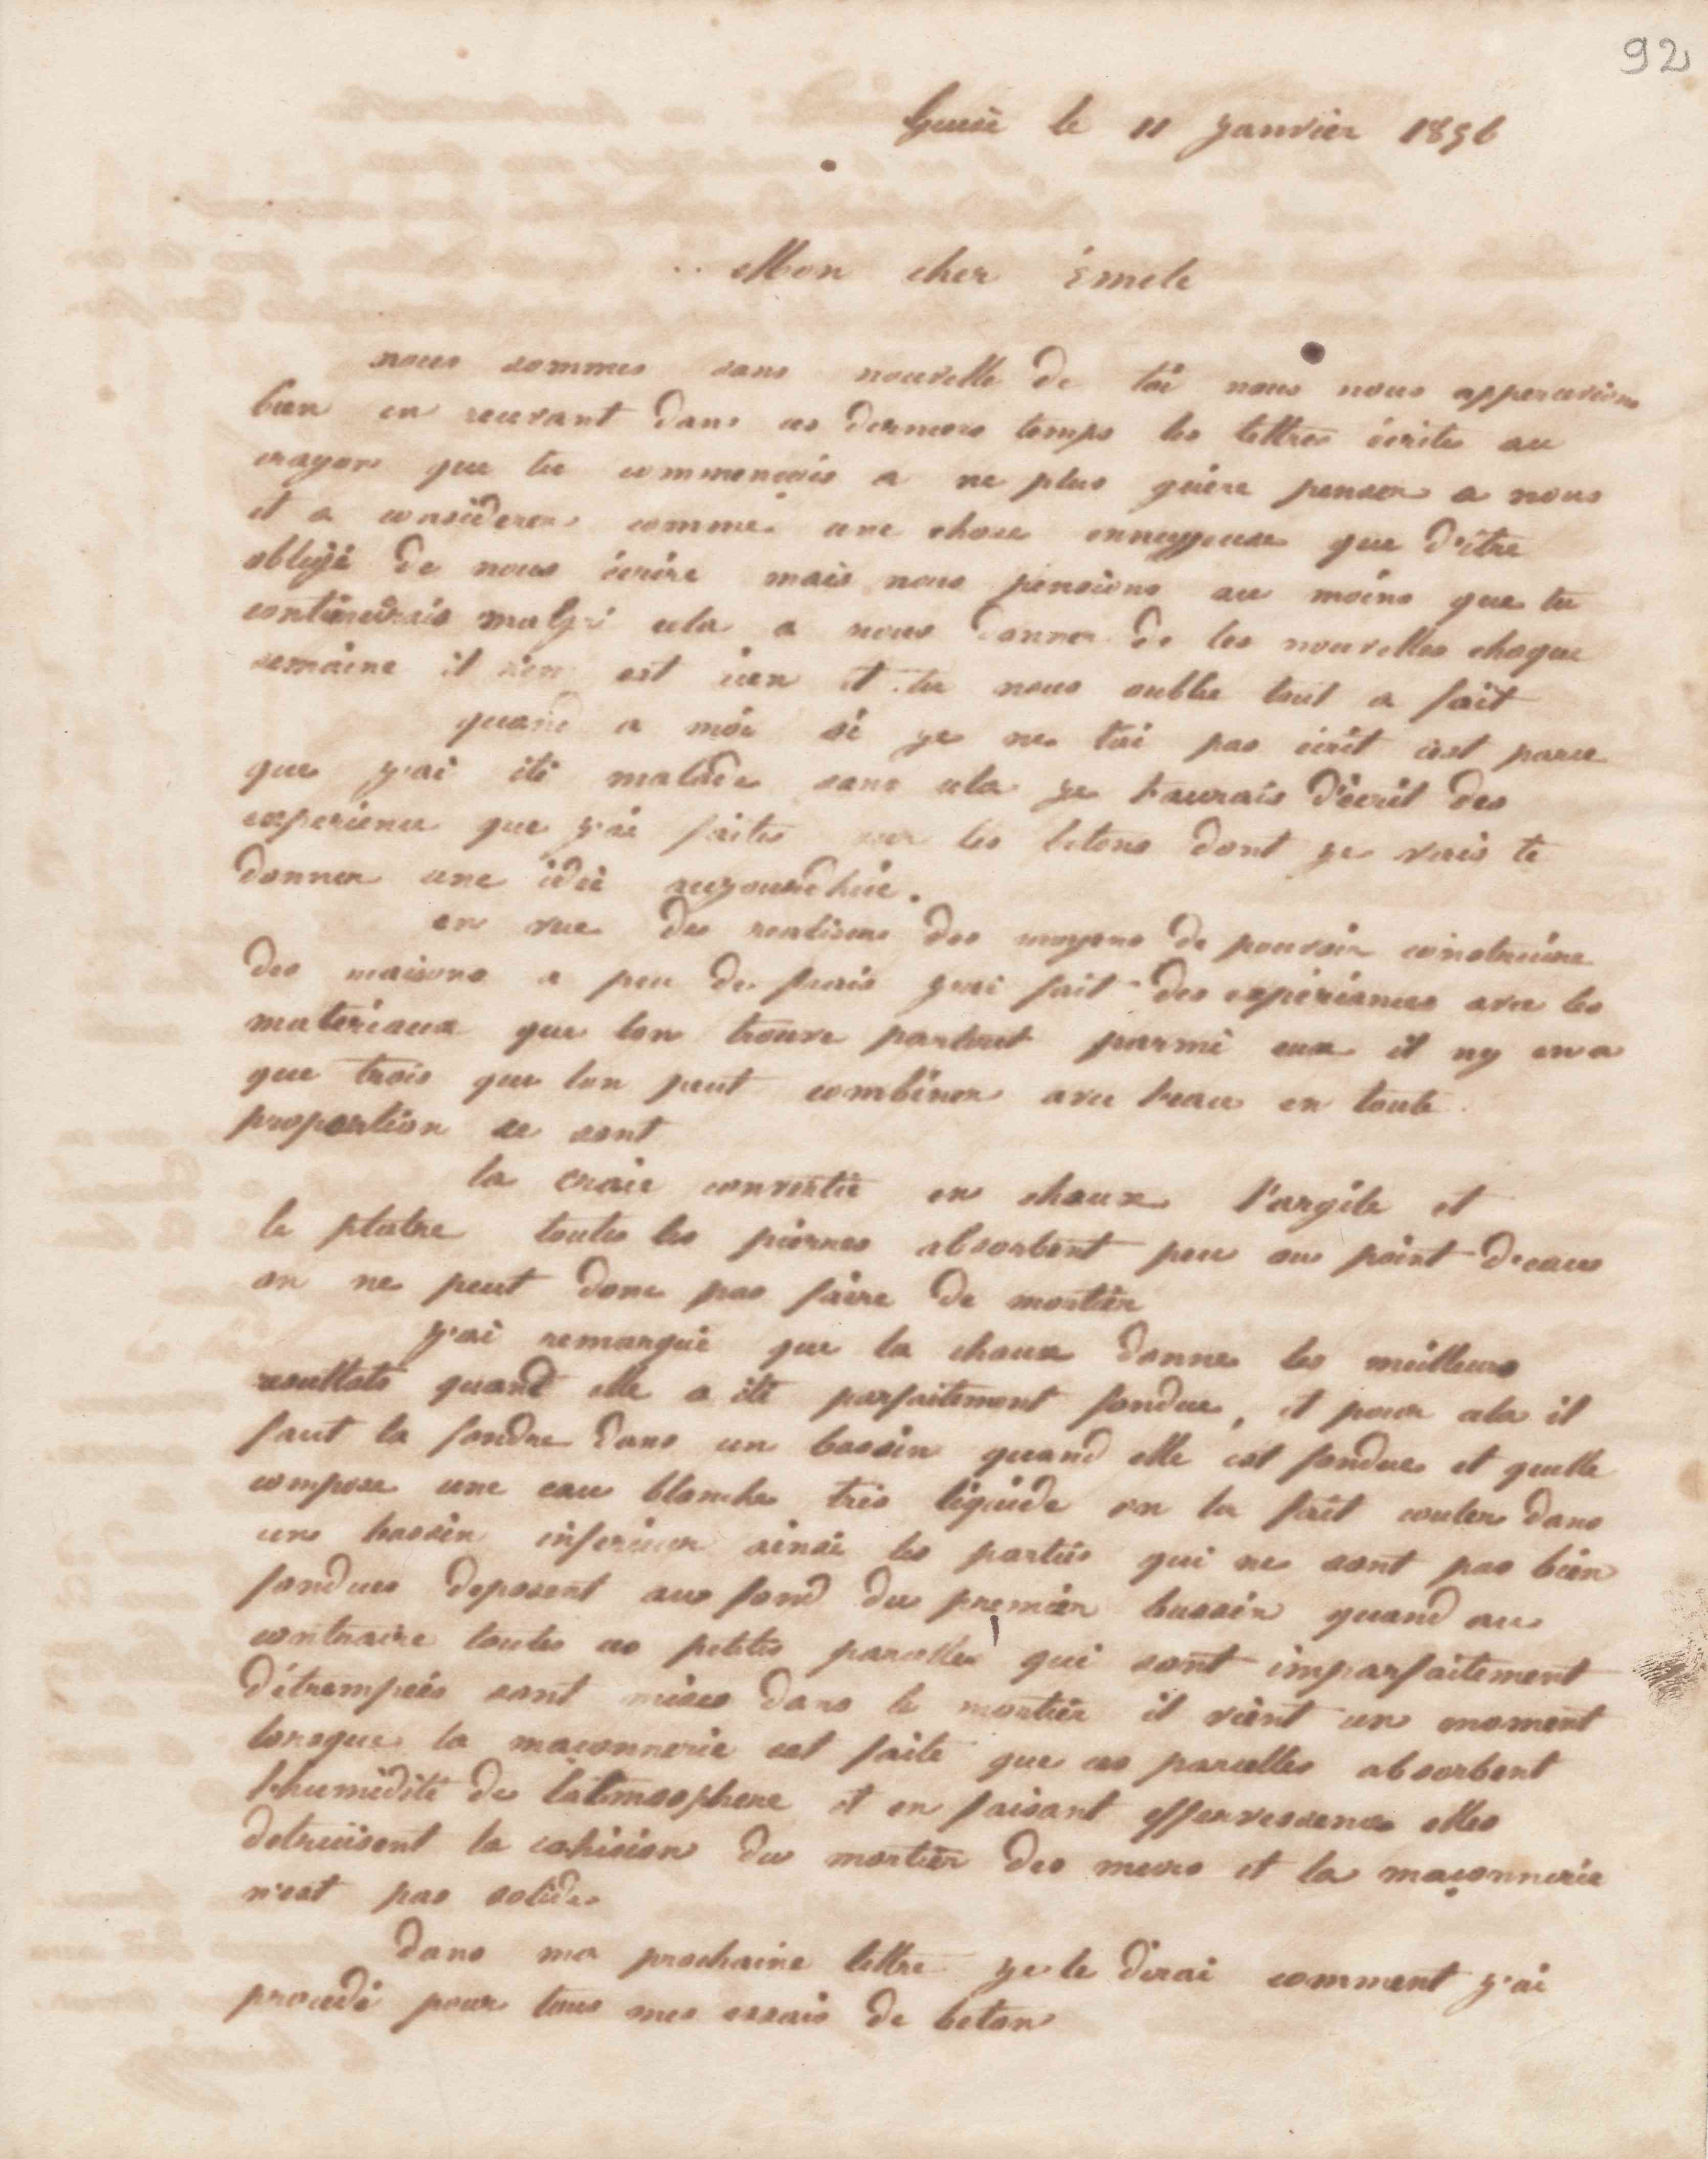 92
Guise le 11 janvier 1856
Mon cher Émile
nous sommes sans nouvelle de toi nous nous appercevions
bien en recevant dans ces derniers temps les lettres écrites au
crayon que tu commençais a ne plus guère penser a nous
et a considerer comme une chose ennuyeuse que d'être
obligé de nous écrire mais nous pensions au moins que tu
continurais malgré cela a nous donner de tes nouvelles chaque
semaine il n'en est rien et tu nous oublie tout a fait
quand a moi si je ne tai pas écrit c'est parce
que j'ai été malade sans cela je t'aurais décrit des
experience que j'ai faites sur les betons dont je vais te
donner une idée aujourd'hui.
en vue de realiser des moyens de pouvoir construire
des maisons a peu de frais j'ai fait des expériances avec les
matériaux que lon trouve partout parmi eux il ny en a
que trois que lon peut combiner avec l'eau en toute
proportion ce sont
la craie convertie en chaux l'argile et
le platre toutes les pierres absorbent peu ou point d'eau
on ne peut donc pas faire de mortier
j'ai remarqué que la chaux donne les meilleurs
resultats quand elle a été parfaitement fondue, et pour cela il
faut la fondre dans un bassin quand elle est fondue et quelle
compose une eau blanche très liquide on la fait couler dans
un bassin inferieur ainsi les parties qui ne sont pas bien
fondues deposent au fond du premier bassin quand au
contraire toutes ces petites parcelles qui sont imparfaitement
détrempées sont mises dans le mortier il vient un moment
lorsque la maçonnerie est faite que ces parcelles absorbent
l'humidité de latmosphere et en faisant effervescence elles
detruisent la cohision du mortier des murs et la maçonnerie
n'est pas solide
dans ma prochaine lettre je te dirai comment j'ai
procedé pour tous mes essais de beton